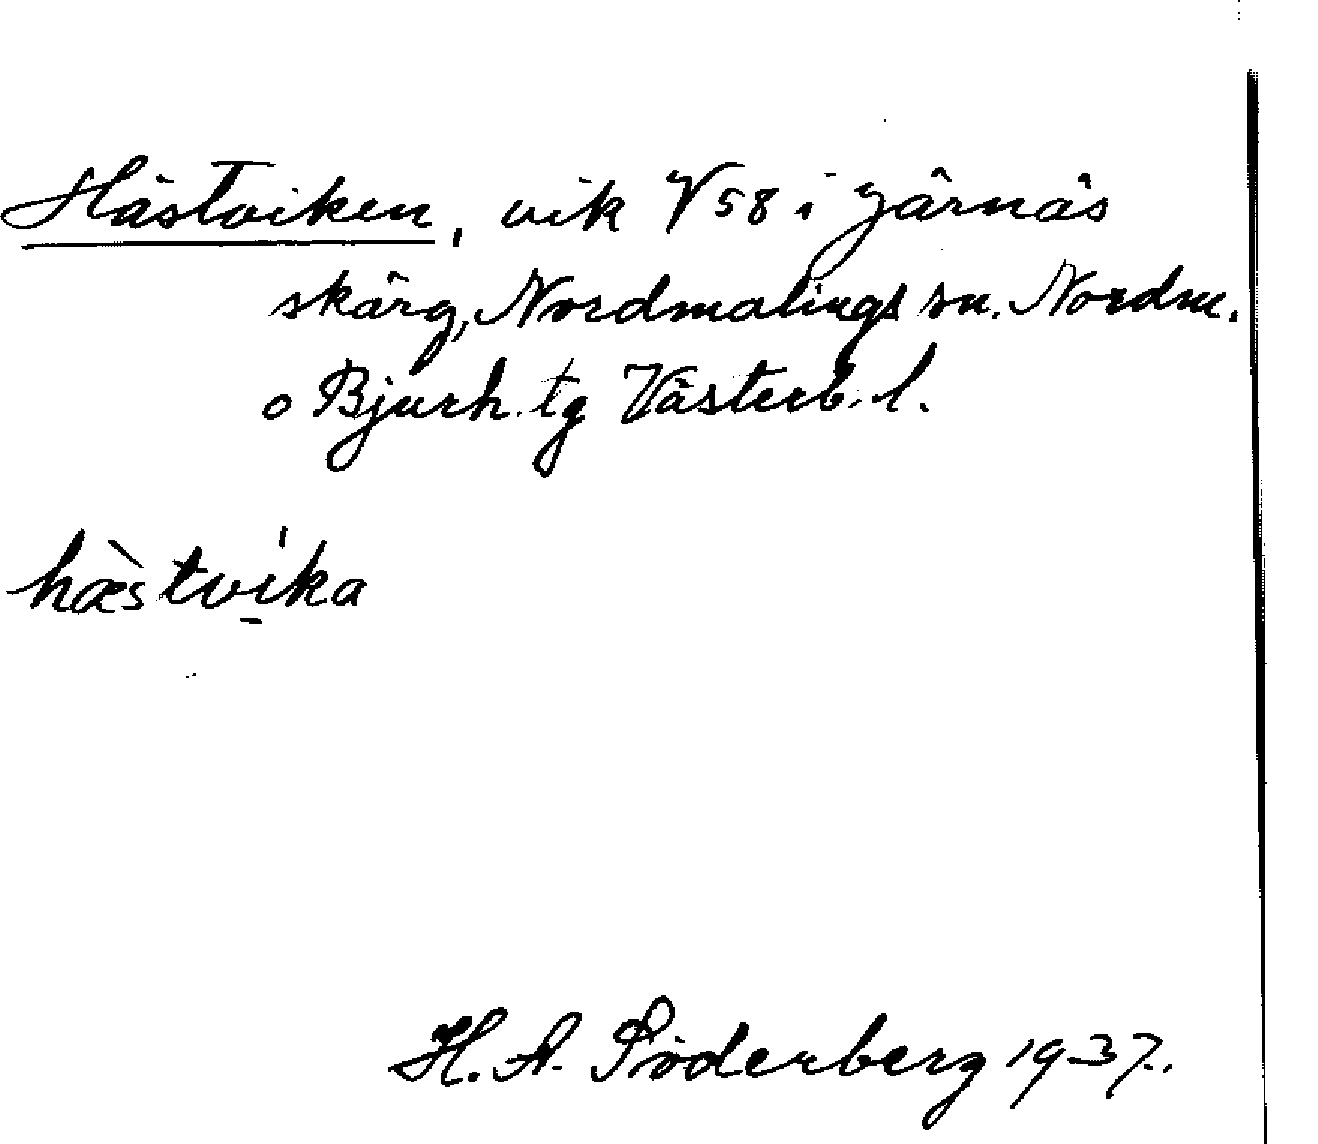 Hästviken, vik V 58 i Järnäs
skärg, Nordmalings sn. Nordm.
o Bjurh. tg Västerb. l.
hæ̀stvi̱ka
H. A. Söderberg 1937.